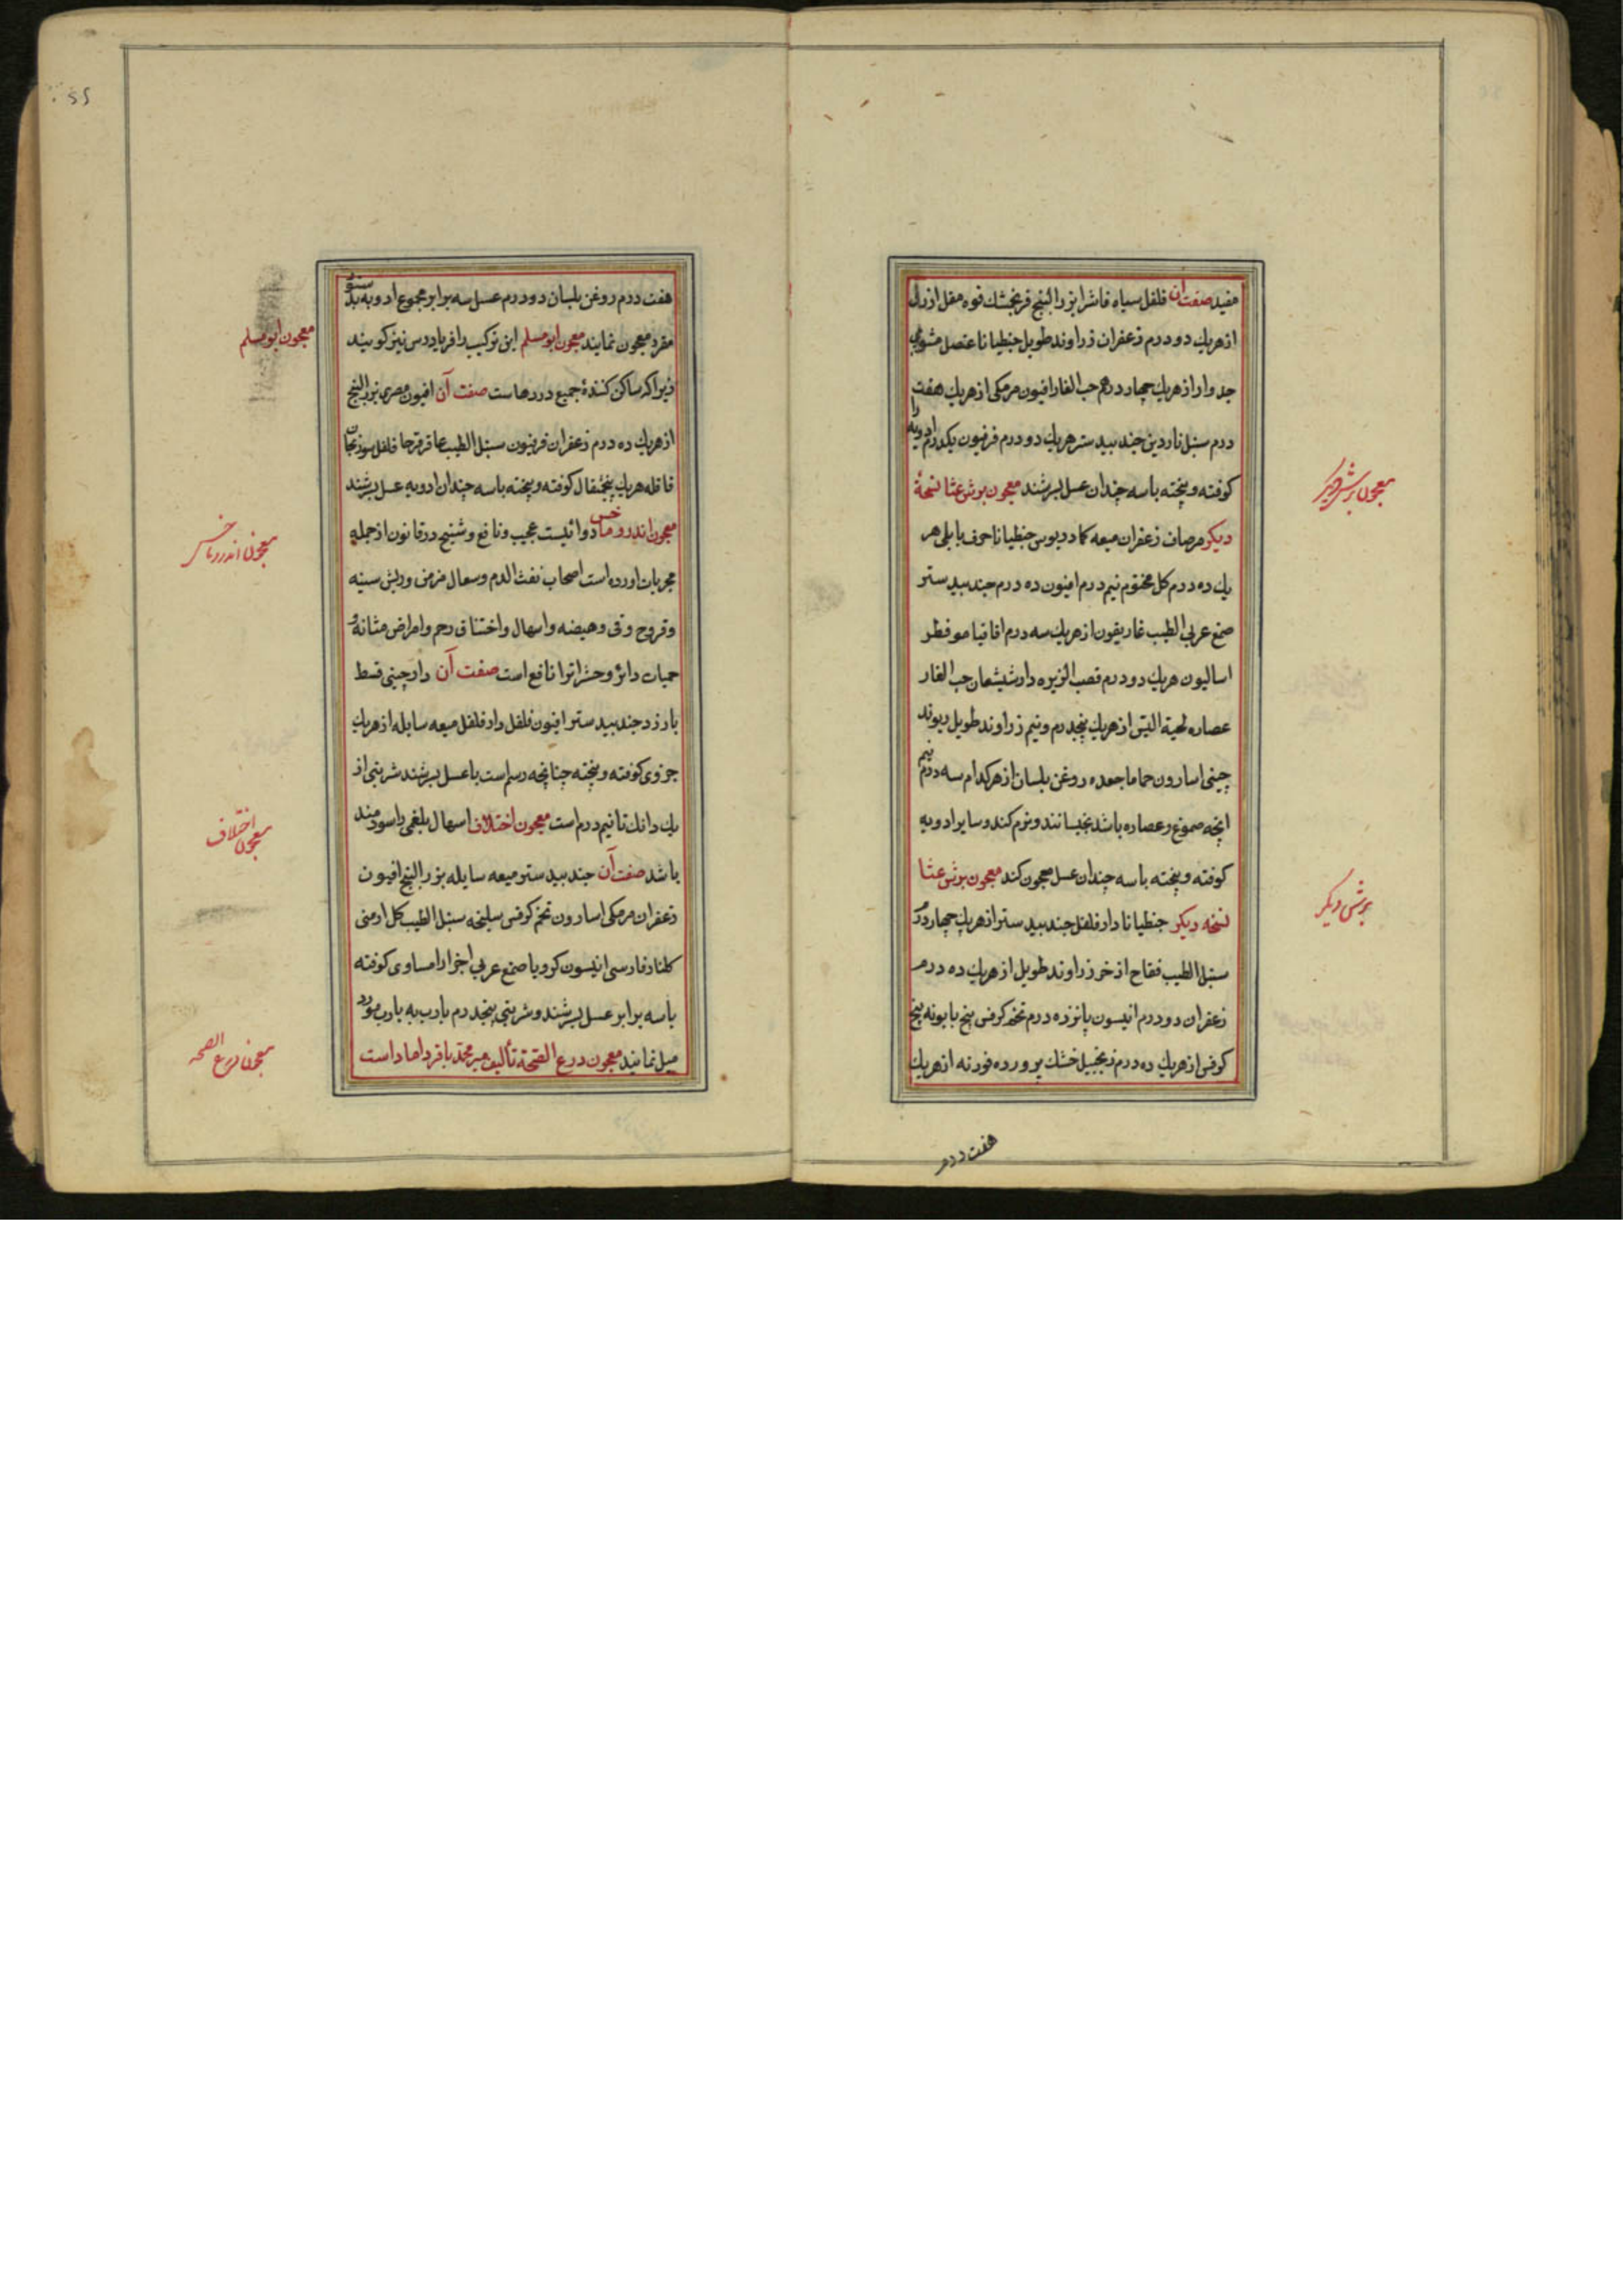 مفید صفت آن فلفل سیاه فاشرا بزرالبنج فرنجمشك فوه مقل ازرق
ازهریك دو درم زعفران زراوند طویل جنطیانا عنصل مشوی
جدوار ازهریك چهار درهم حب الغار افیون مرمکی ازهریك هفت
درم سنبل ناردین جندبیدستر هریك دو درم فرفیون یکدرم ادویه را
کوفته و بیخته باسه چندان عسل بسرشند معجون برش عشا نسخهٔ
دیکر مرصاف زعفران میعه کمادریوس جنطیانا حرف بابلی هر
یك ده درم کل مختوم نیم درم افیون ده درم جندبیدستر
صمغ عربی الطیب غاریقون ازهریك سه درم اقاقیا مو فطر
اسالیون هریك دو درم قصب الزیره دارشیشعان حب الغار
عصاره لحیة التیس ازهریك پنجدرم و نیم زراوند طویل ریوند
چینی اسارون حماما جعده روغن بلسان ازهرکدام سه درم نیم
انچه صموغ و عصاره باشد بخیسانند و نرم کند و سایر ادویه
کوفته و بیخته باسه چندان عسل معجون کند معجون برش عشا
نسخه دیکر جنطیانا دارفلفل جندبیدستر ازهریك چهار درم
سنبل الطیب فقاح اذخر زراوند طویل ازهریك ده درم
زعفران دو درم انیسون پانزده درم تخم کرفس بیخ بابونه بیخ
کرفس ازهریك ده درم زنجبیل خشك پرورده فودنه ازهریك
هفت درم
معجون برش دیکر
برشی دیکر
هفت درم روغن بلسان دو درم عسل سه برابر مجموع ادویه بدستور
مقرر معجون نمایند معجون ابومسلم این ترکیب را فریادرس نیز کویند
زیرا که ساکن کنندهٔ جمیع دردهاست صفت آن افیون مصری بزرالبنج
ازهریك ده درم زعفران فرفیون سنبل الطیب عاقرقرحا فلفل سورنجان
قاقله هریك پنجمثقال کوفته و بیخته باسه چندان ادویه عسل بسرشند
معجون اندروماخس دوائیست عجیب و نافع و شیخ در قانون از جمله
مجربات اورده است اصحاب نفث الدم و سعال مزمن و ریش سینه
و قروح و قی و هیضه و اسهال و اختناق رحم و امراض مثانه و
حمیات دائر و حشرات را نافع است صفت آن دارچینی قسط
بارزد جندبیدستر افیون فلفل دارفلفل میعه سایله ازهریك
جزوی کوفته و بیخته چنانچه رسم است باعسل بسرشند شربتی از
یك دانك تا نیم درم است معجون اختلاف اسهال بلغمی را سودمند
باشد صفت آن جندبیدستر میعه سایله بزرالبنج افیون
زعفران مرمکی اسارون تخم کرفس سلیخه سنبل الطیب کل ارمنی
کلنار فارسی انیسون کرویا صمغ عربی اجزا را مساوی کوفته
باسه برابر عسل بسرشند و شربتی پنجدرم بارب به یارب مورد
میل نمایند معجون درع الصحة تألیف میر محمد باقر داماد است
معجون ابومسلم
معجون اندروماخس
معجون اختلاف
معجون درع الصحه